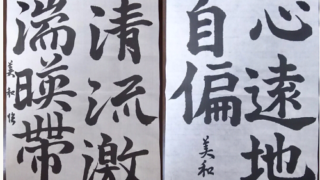 清流激
湍暎帶
美和
心遠地
自偏
美和